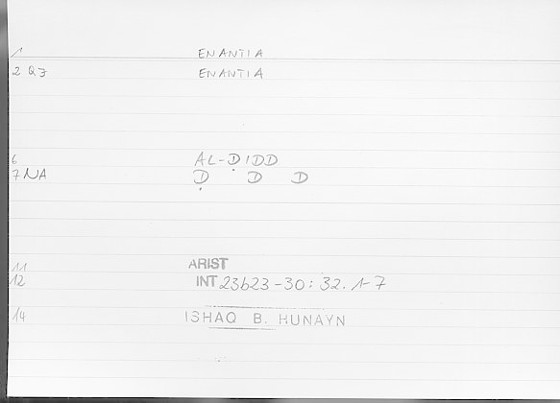 1 ENANTIA
2 QJ ENANTIA
6 AL-ḌIDD
7 NA Ḍ D D
11 ARIST
12 INT 23b23-30: 32.1-7
14 ISHAQ B. HUNAYN